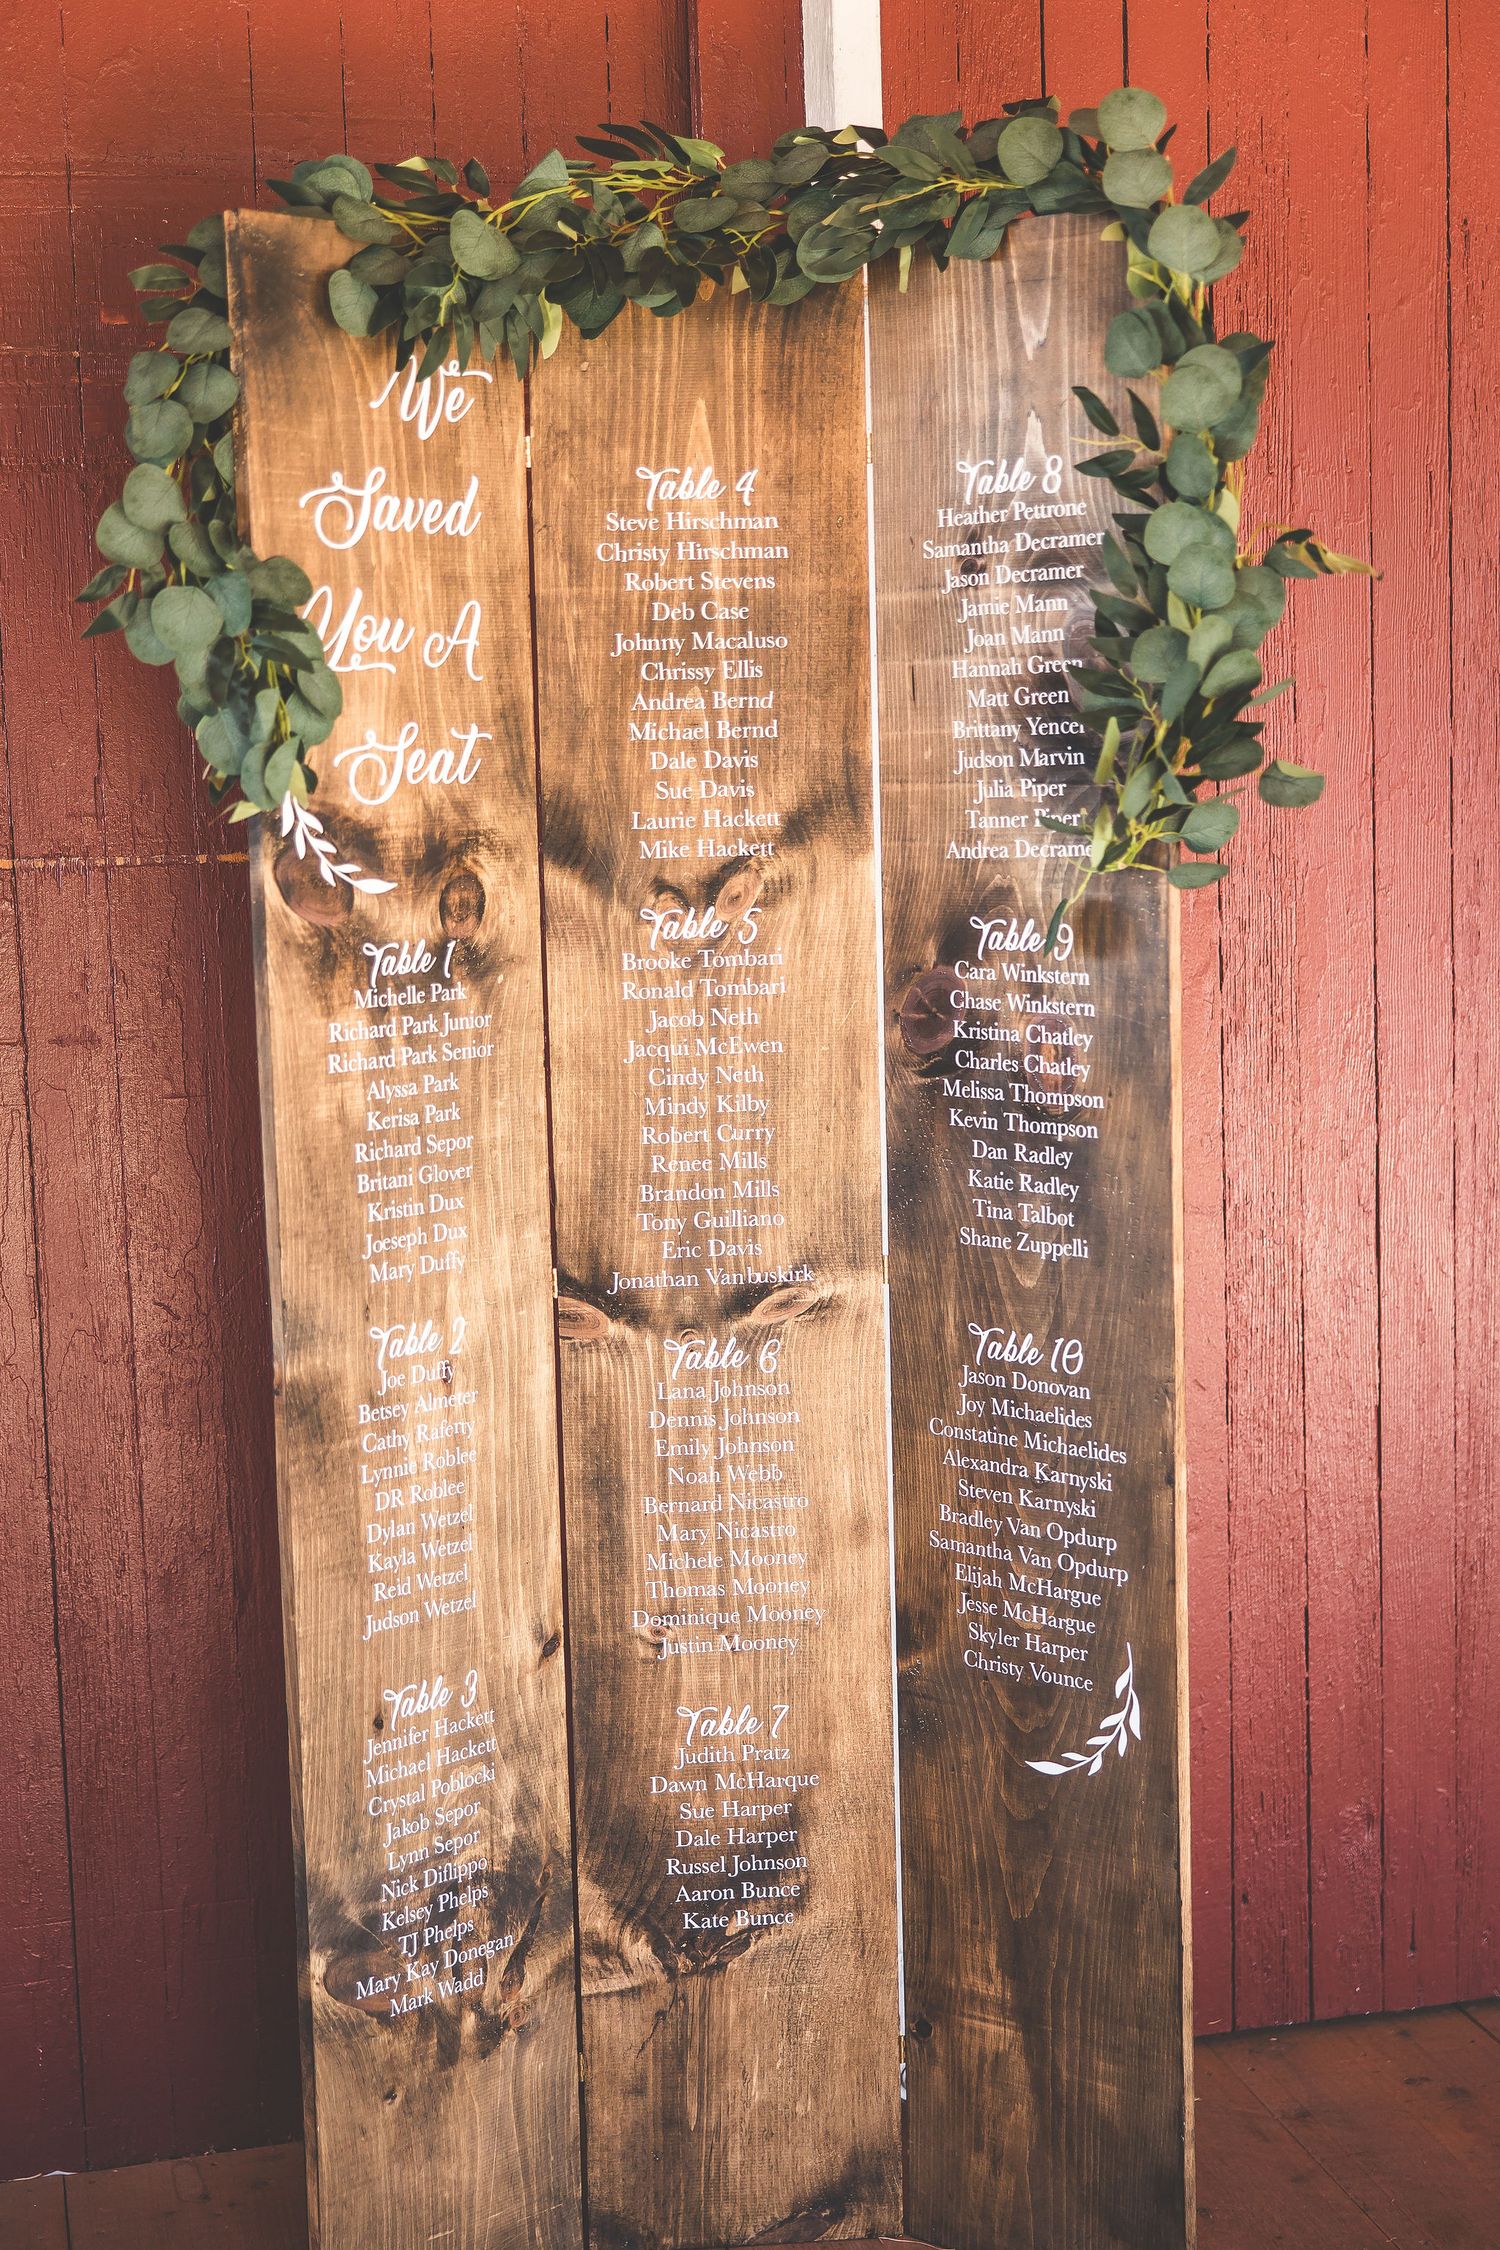 We
Saved
You A
Seat
Table 1
Michelle Park
Richard Park Junior
Richard Park Senior
Alyssa Park
Kerisa Park
Richard Sepor
Britani Glover
Kristin Dux
Joeseph Dux
Mary Duffy
Table 2
Joe Duffy
Betsey Almeter
Cathy Raferty
Lynnie Roblee
DR Roblee
Dylan Wetzel
Kayla Wetzel
Reid Wetzel
Judson Wetzel
Table 3
Jennifer Hackett
Michael Hackett
Crystal Poblocki
Jakob Sepor
Lynn Sepor
Nick Diflippo
Kelsey Phelps
TJ Phelps
Mary Kay Donegan
Mark Wadd
Table 4
Steve Hirschman
Christy Hirschman
Robert Stevens
Deb Case
Johnny Macaluso
Chrissy Ellis
Andrea Bernd
Michael Bernd
Dale Davis
Sue Davis
Laurie Hackett
Mike Hackett
Table 5
Brooke Tombari
Ronald Tombari
Jacob Neth
Jacqui McEwen
Cindy Neth
Mindy Kilby
Robert Curry
Renee Mills
Brandon Mills
Tony Guilliano
Eric Davis
Jonathan Vanbuskirk
Table 6
Lana Johnson
Dennis Johnson
Emily Johnson
Noah Webb
Bernard Nicastro
Mary Nicastro
Michele Mooney
Thomas Mooney
Dominique Mooney
Justin Mooney
Table 7
Judith Pratz
Dawn McHarque
Sue Harper
Dale Harper
Russel Johnson
Aaron Bunce
Kate Bunce
Table 8
Heather Pettrone
Samantha Decramer
Jason Decramer
Jamie Mann
Joan Mann
Hannah Green
Matt Green
Brittany Yencer
Judson Marvin
Julia Piper
Tanner Piper
Andrea Decramer
Table 9
Cara Winkstern
Chase Winkstern
Kristina Chatley
Charles Chatley
Melissa Thompson
Kevin Thompson
Dan Radley
Katie Radley
Tina Talbot
Shane Zuppelli
Table 10
Jason Donovan
Joy Michaelides
Constatine Michaelides
Alexandra Karnyski
Steven Karnyski
Bradley Van Opdurp
Samantha Van Opdurp
Elijah McHargue
Jesse McHargue
Skyler Harper
Christy Vounce